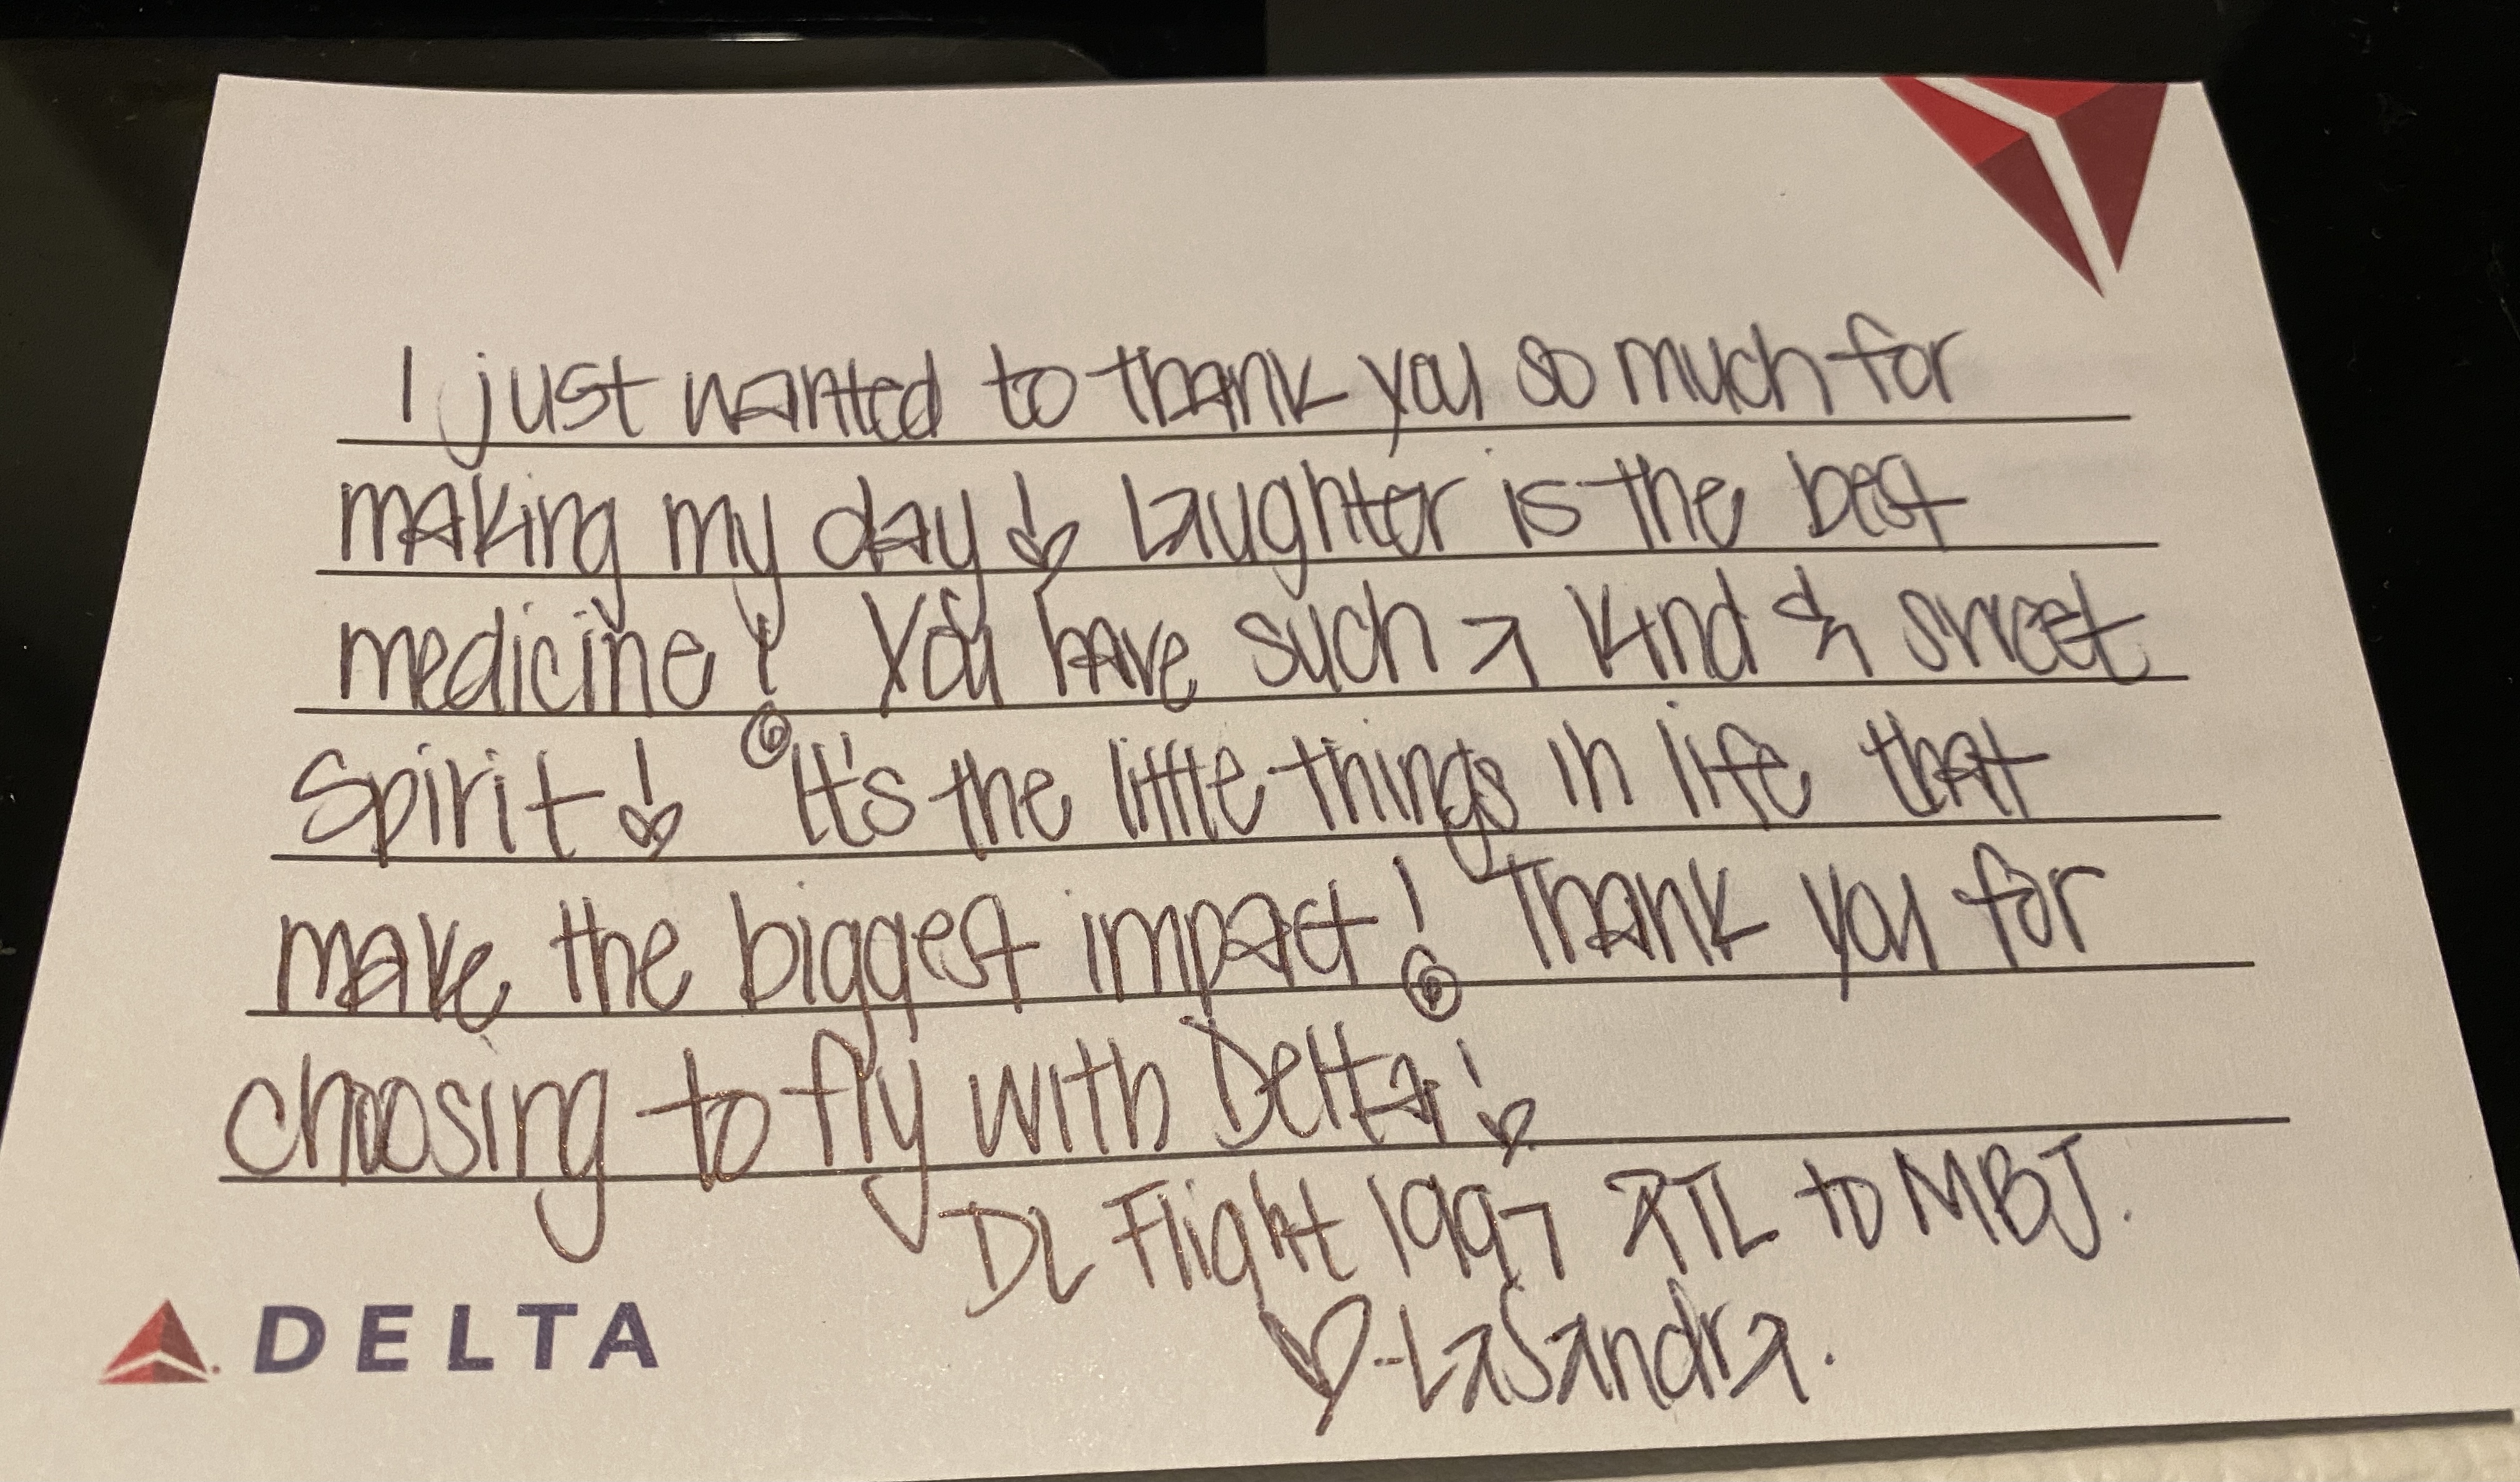 I just wanted to thank you so much for
making my day! Laughter is the best
medicine! You have such a kind & sweet
spirit! It's the little things in life that
make the biggest impact! Thank you for
choosing to fly with Delta!
DL Flight 1997 ATL to MBJ.
♡-LaSandra.
DELTA